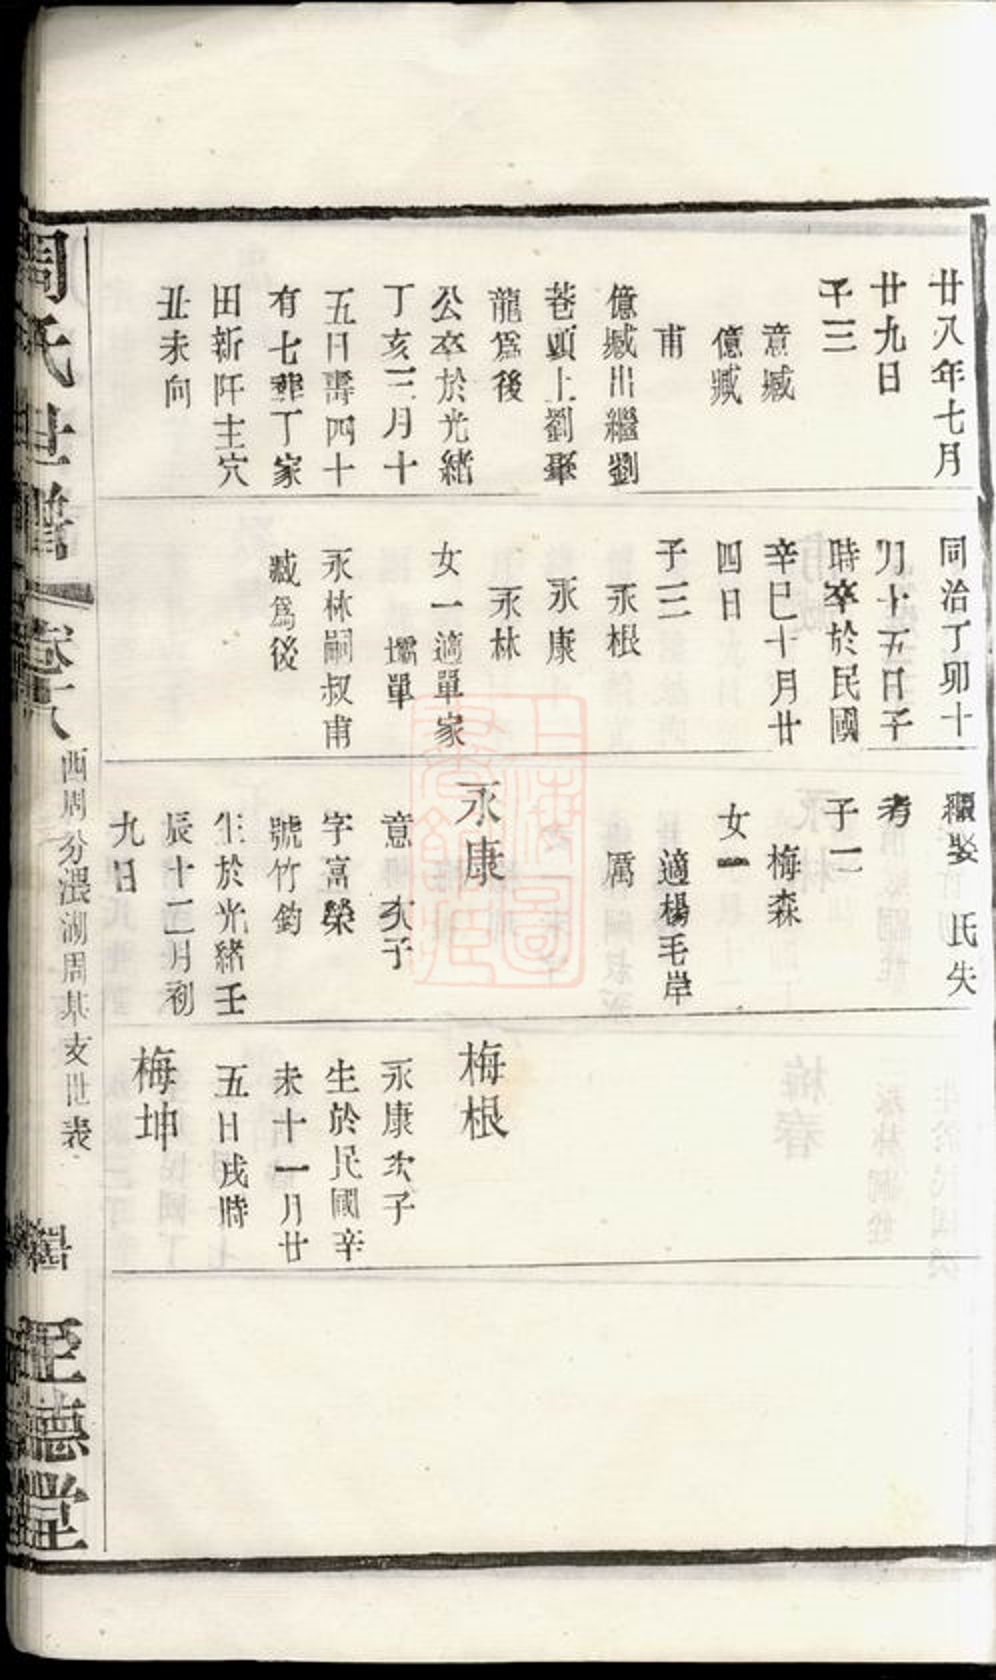 廿八年七月
廿九日
子三
意臧
億臧
甫
億臧出繼劉
巷頭上劉聚
龍爲後
公卒於光緒
丁亥三月十
五日壽四十
有七葬丁家
田新阡主穴
丑未向
同治丁卯十
月十五日子
時卒於民國
辛巳十月廿
四日
子三
永根
永康
永林
女一適單家
壩單
永林嗣叔甫
臧爲後
續娶 氏失
考
子一
梅森
女一
適楊毛岸
厲
永康
意 次子
字富榮
號竹鈞
生於光緒壬
辰十二月初
九日
梅根
永康次子
生於民國辛
未十一月廿
五日戌時
梅坤
周氏世譜
卷十八
西周分溾湖周基支世表
至德堂